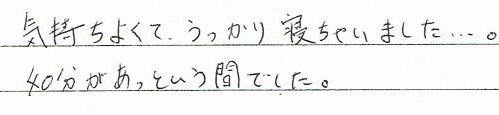 気持ちよくて、うっかり寝ちゃいました…。
40分があっという間でした。